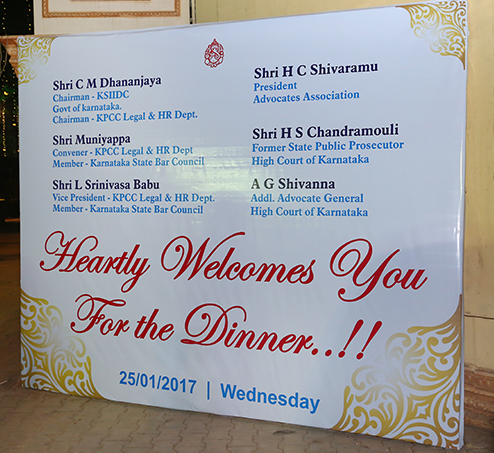 Shri C M Dhananjaya
Chairman - KSIIDC
Govt of karnataka.
Chairman - KPCC Legal & HR Dept.
Shri Muniyappa
Convener - KPCC Legal & HR Dept
Member - Karnataka State Bar Council
Shri L Srinivasa Babu
Vice President - KPCC Legal & HR Dept.
Member - Karnataka State Bar Council
Shri H C Shivaramu
President
Advocates Association
Shri H S Chandramouli
Former State Public Prosecutor
High Court of Karnataka
A G Shivanna
Addl. Advocate General
High Court of Karnataka
Heartly Welcomes You
For the Dinner..!!
25/01/2017 | Wednesday